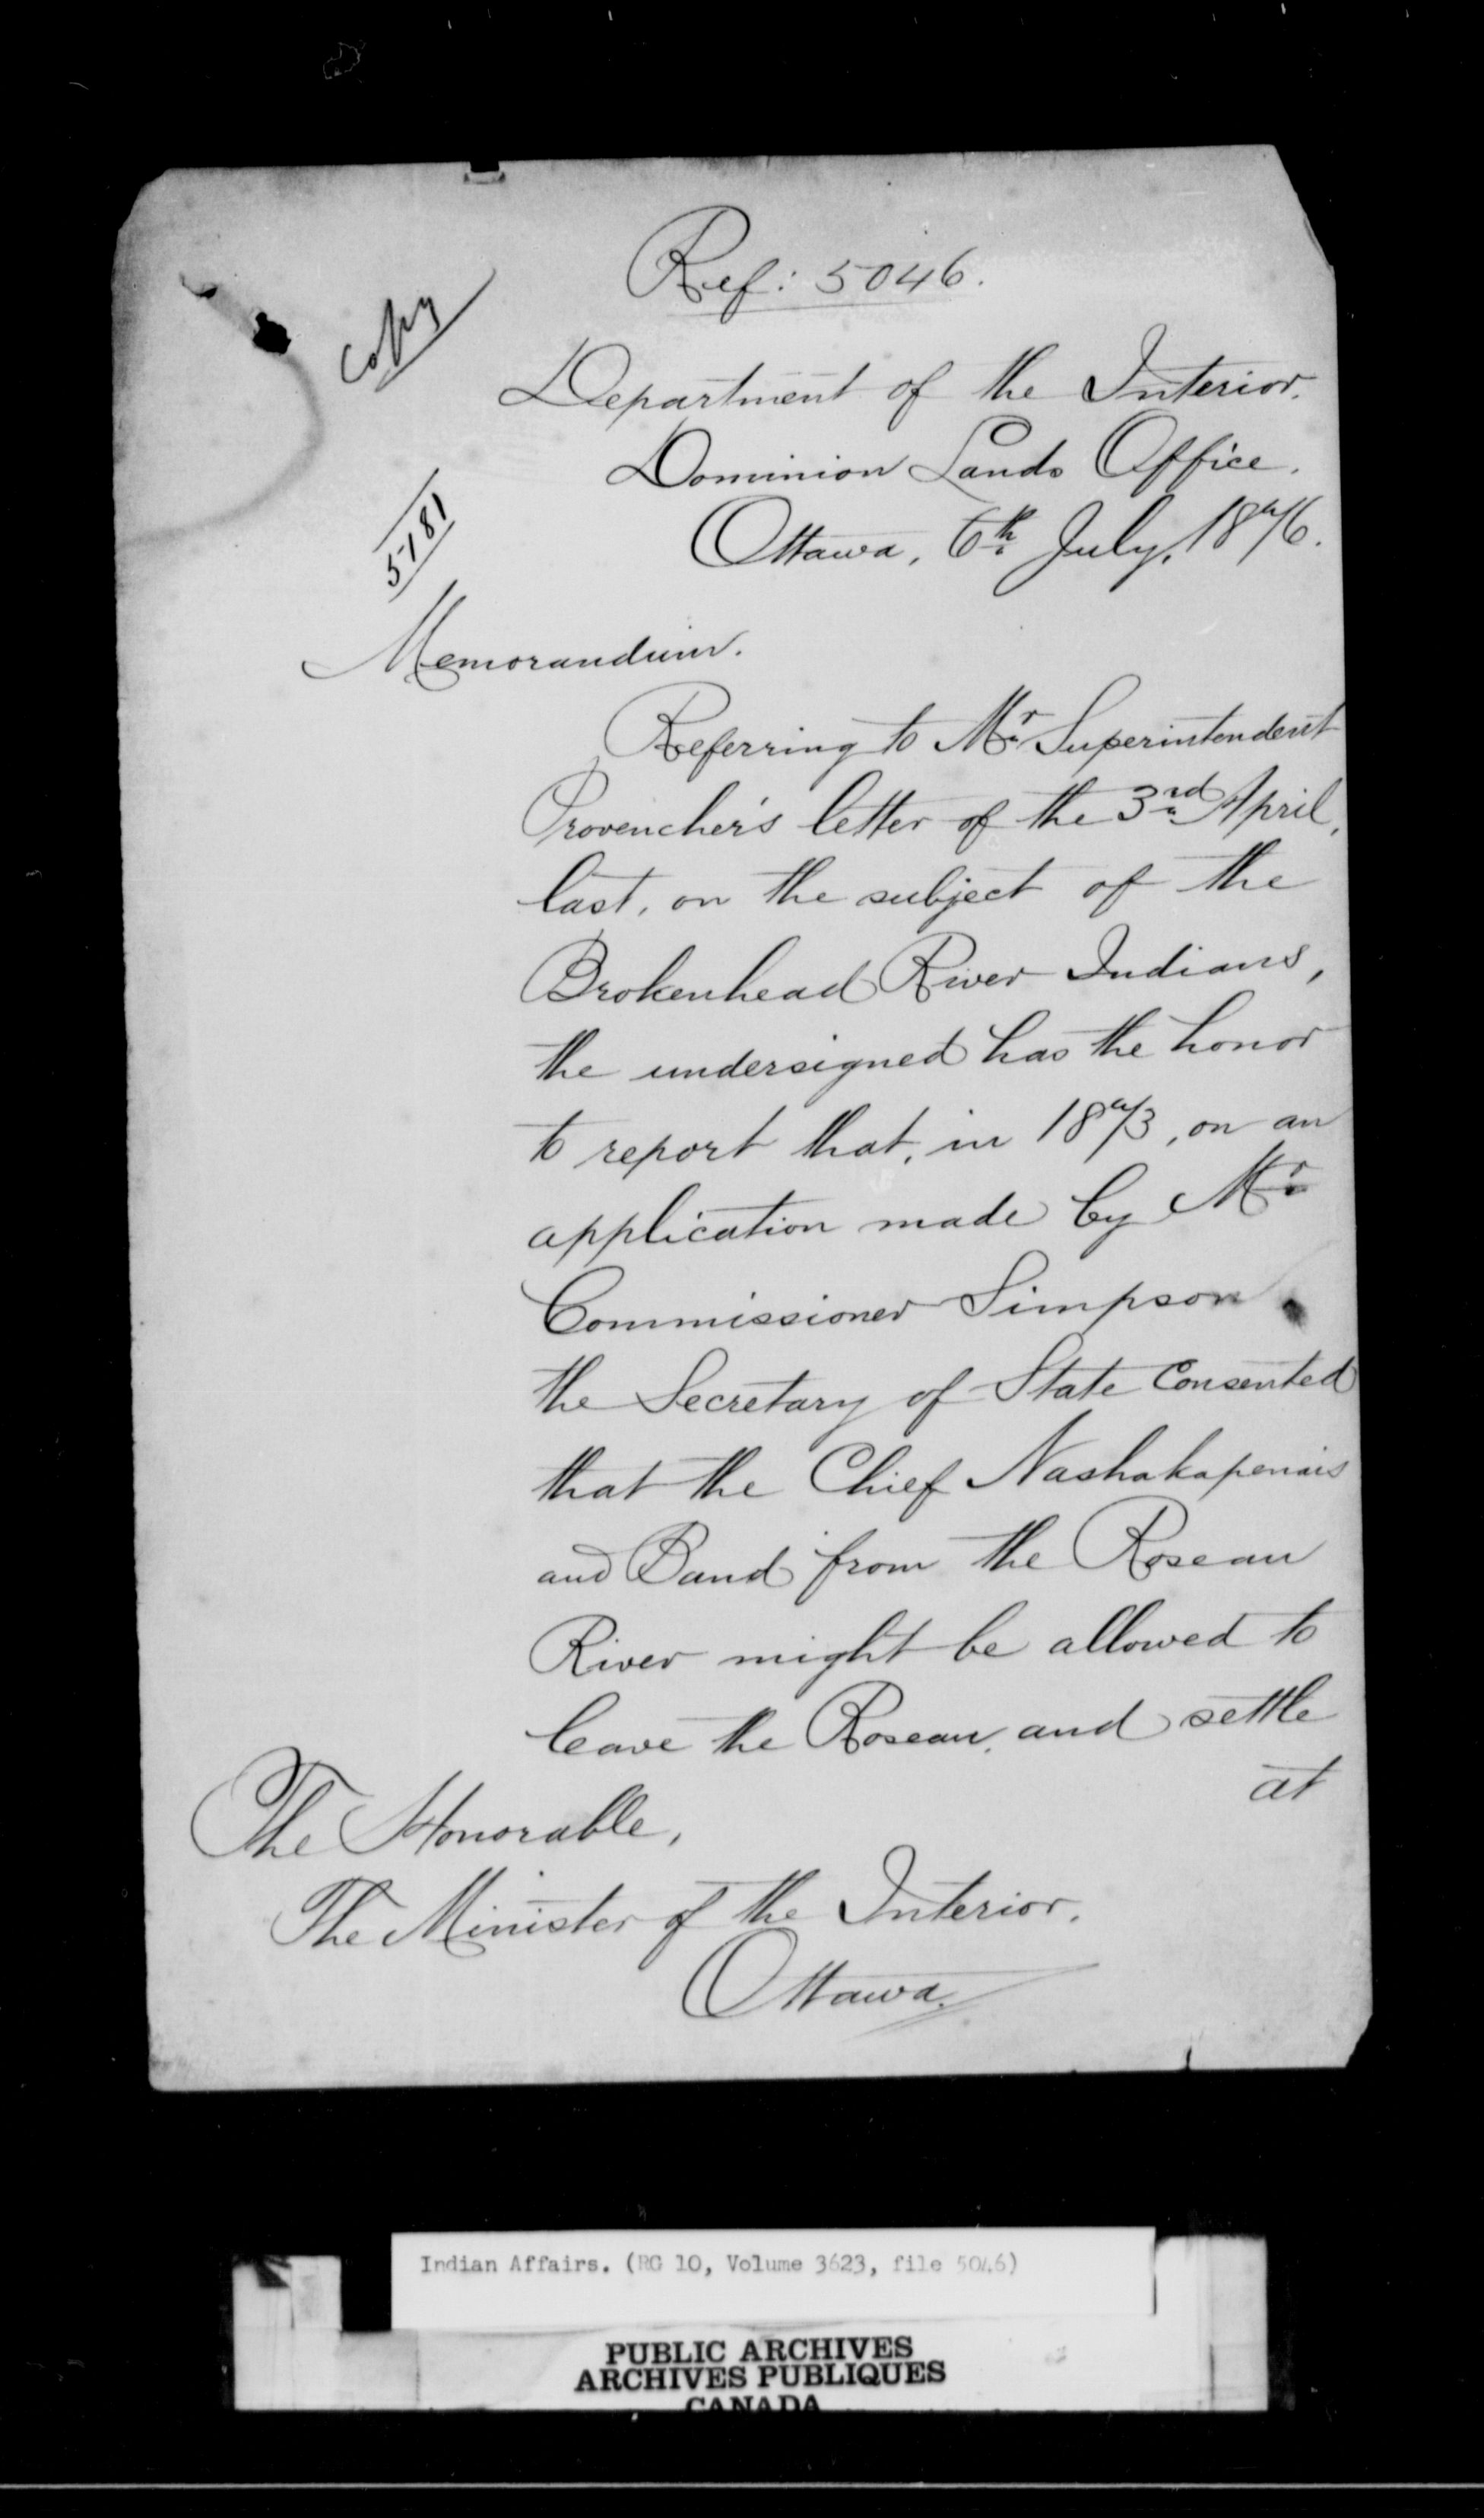 Ref: 5046.
Copy
Department of the Interior.
Dominion Lands Office.
Ottawa, 6th July, 1876.
5181
Memorandum.
Referring to Mr Superintendent
Provencher's letter of the 3rd April,
last, on the subject of the
Brokenhead River Indians,
the undersigned has the honor
to report that, in 1873, on an
application made by Mr
Commissioner Simpson
the Secretary of State Consented
that the Chief Nashakapenais
and Band from the Roseau
River might be allowed to
leave the Roseau, and settle
at
The Honorable,
The Minister of the Interior.
Ottawa.
Indian Affairs. (RG 10, Volume 3623, file 5046)
PUBLIC ARCHIVES
ARCHIVES PUBLIQUES
CANADA